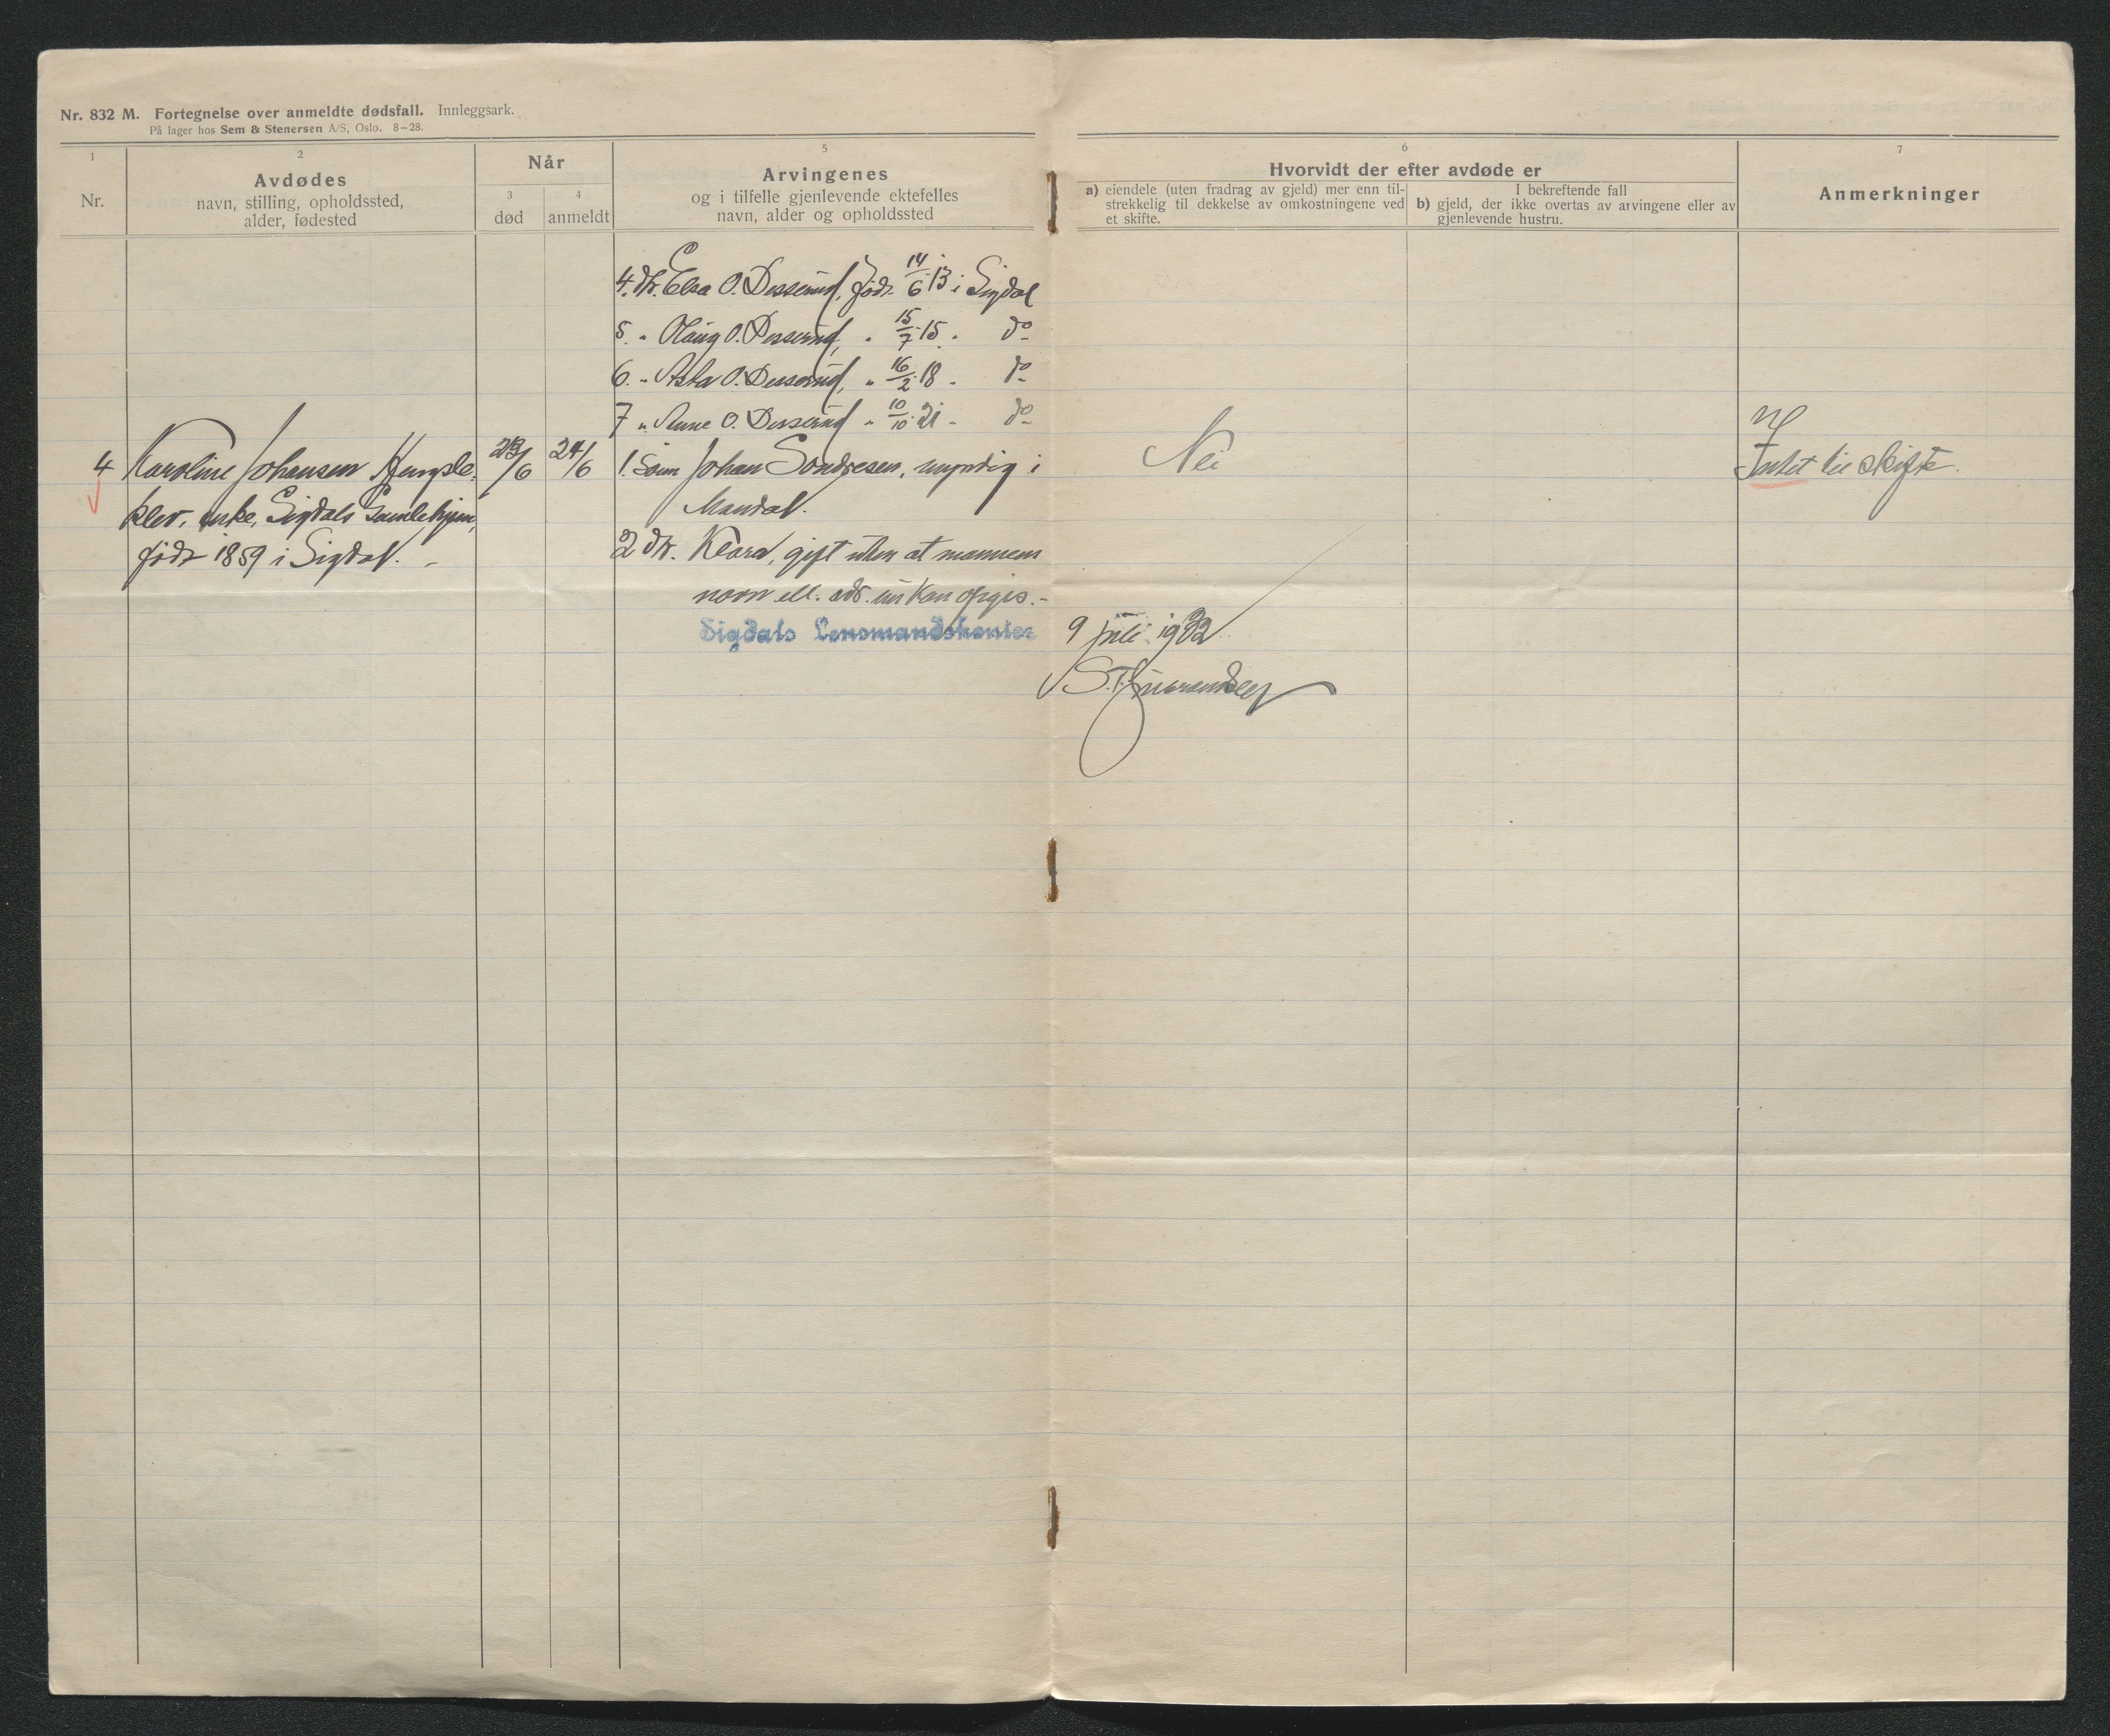 Nr. 832 M. Fortegnelse over anmeldte dødsfall. Innleggsark.
På lager hos Sem & Stenersen A/S, Oslo. 8–28.
1
Nr.
2
Avdødes
navn, stilling, opholdssted,
alder, fødested
Når
3
død
4
anmeldt
5
Arvingenes
og i tilfelle gjenlevende ektefelles
navn, alder og opholdssted
6
Hvorvidt der efter avdøde er
a) eiendele (uten fradrag av gjeld) mer enn til-
strekkelig til dekkelse av omkostningene ved
et skifte.
I bekreftende fall
b) gjeld, der ikke overtas av arvingene eller av
gjenlevende hustru.
7
Anmerkninger
4. dtr. Elsa O. Desserud, født 14/6 13 i Sigdal
5. " Olaug O. Desserud, " 15/7 15 " do
6. " Asta O. Desserud, " 16/2 18 " do
7 " Anne O. Desserud " 10/10 21 " do
4 Karoline Johansen
klev, enke, Sigdals Gamlehjem,
født 1859 i Sigdal.
23/6 24/6
1. Sønn Johan Sondresen, myndig i
Mandal.
2 dtr. Klara, gift uten at mannens
navn ell. adr. kan opgis.
Nei
Intet til skifte.
Sigdals Lensmandskontor 9 juli 1932